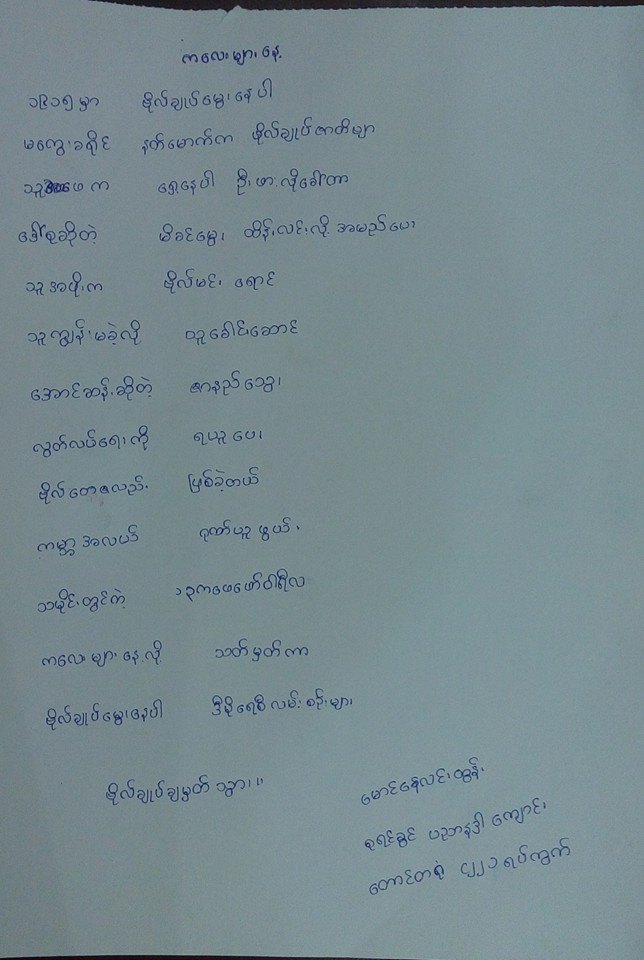 ကလေးများနေ့
၁၉၁၅ မှာ ဗိုလ်ချုပ်မွေးနေ့ပါ
မကွေးခရိုင် နတ်မောက်က ဗိုလ်ချုပ်ဇာတိမျာ
သူ့အဖေက ရှေ့နေပါ ဦးဖာလို့ခေါ်တာ
ဒေါ်စုဆိုတဲ့ မိခင်မွေး ထိန်လင်းလို့ အမည်ပေး
သူ့အဖိုးက ဗိုလ်မင်းရောင်
သူ့ကျွန်မခံလို့ သူခေါင်းဆောင်
အောင်ဆန်းဆိုတဲ့ ဇာနည်သွေး
လွတ်လပ်ရေးကို ရယူပေး
ဗိုလ်တေဇလည်း ဖြစ်ခဲ့တယ်
ကမ္ဘာ့အလယ် ဂုဏ်ယူဖွယ်
သမိုင်းတွင်တဲ့ ၁၃ ဖေဖော်ဝါရီလ
ကလေးများနေ့လို့ သတ်မှတ်ကာ
ဗိုလ်ချုပ်မွေးနေ့ပါ ဒီမိုရေစီလမ်းစဉ်များ
ဗိုလ်ချုပ်ချမှတ်သွား။
မောင်နေလင်းထွန်း
စုရင်ခွင် ပညာ ကျောင်း
ရပ်ကွက်